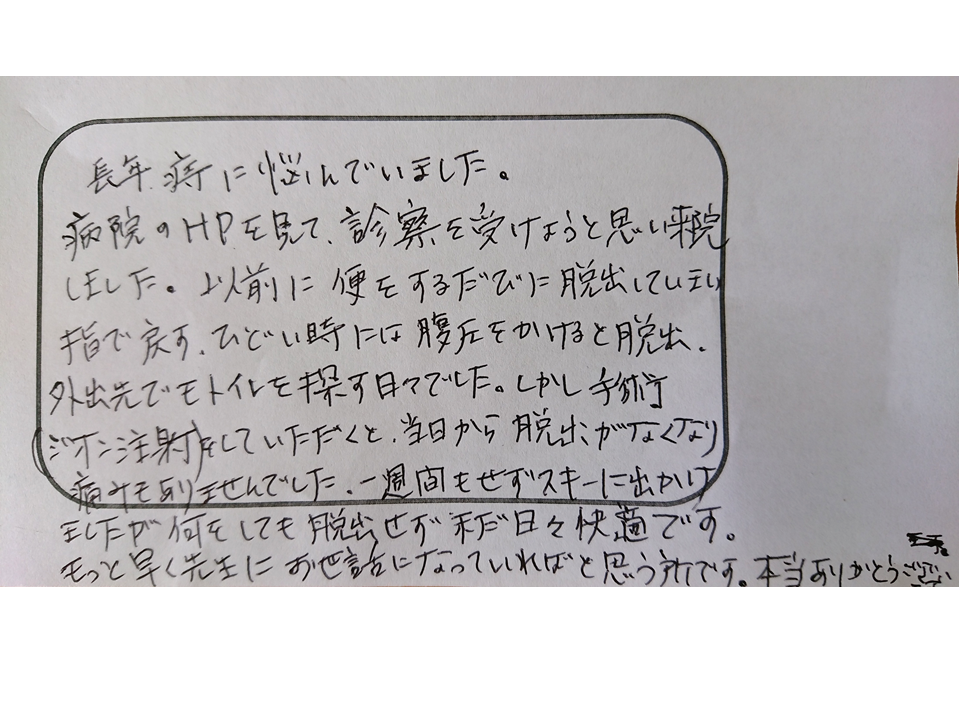 長年痔に悩んでいました。
病院のHPを見て、診察を受けようと思い来院
しました。以前に便をするたびに脱出してしまい
指で戻す、ひどい時には腹圧をかけると脱出、
外出先でもトイレを探す日々でした。しかし手術
(ジオン注射)をしていただくと、当日から脱出がなくなり
痛みもありませんでした、一週間もせずスキーに出かけ
ましたが何をしても脱出せず未だ日々快適です。
もっと早く先生にお世話になっていればと思う所です。本当ありがとう